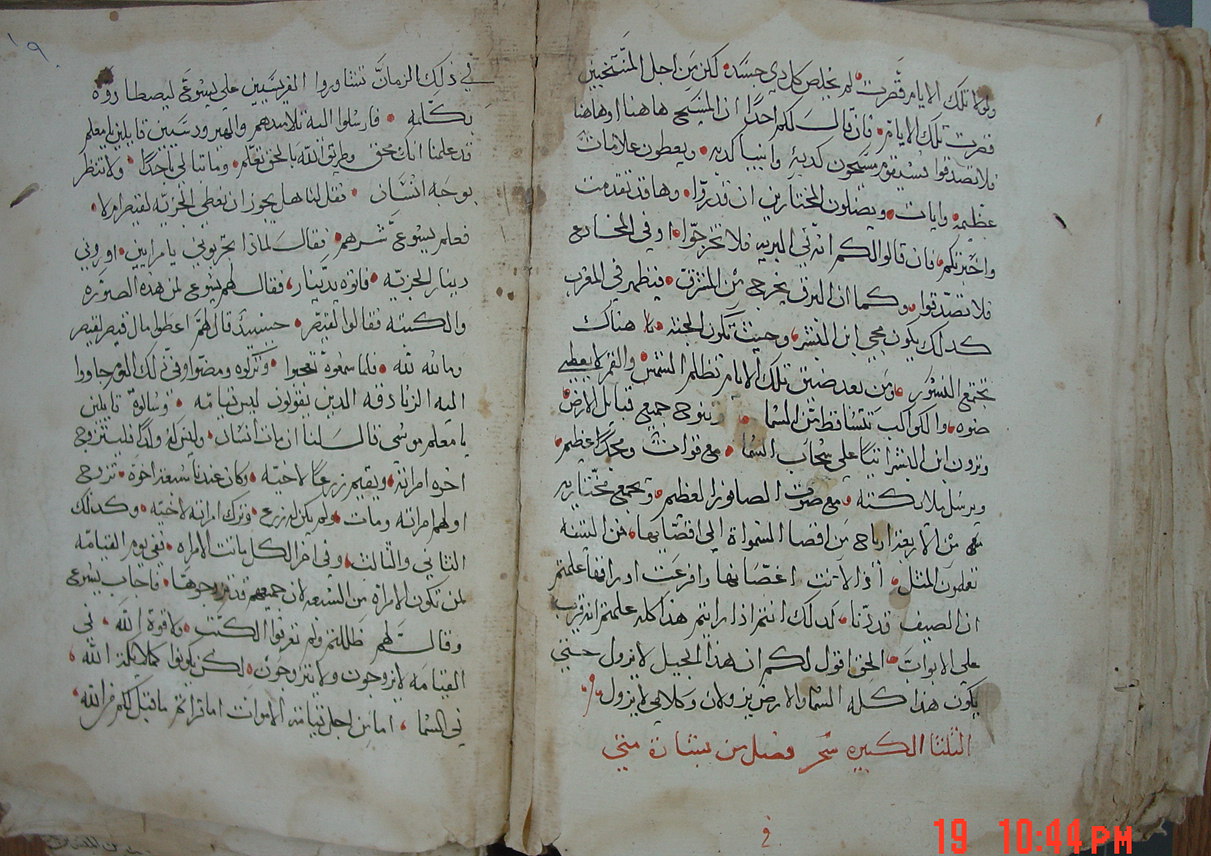 ولولا تلك الايام قصرت لم يخلص كل دي جسد لكن من اجل المنتخبين
قصرت تلك الايام فان قال لكم احدا ان المسيح هاهنا او هاهنا
فلا تصدقوا فسيقوم مسيحون كدبة وانبيا كدبه ويعطون علامات
عظيمه وايات ويضلون المختارين ان قدروا وها قد تقدمت
واخبرتكم فان قالوا لكم انه في البريه فلا تخرجوا او في المخادع
فلا تصدقوا وكما ان البرق يخرج من المشرق فيظهر في المغرب
كدلك يكون مجي ابن البشر وحيث تكون الجثه هناك
تجتمع النسور ومن بعد ضيق تلك الايام تظلم الشمس والقمر لا يعطي
ضوه والكواكب تتساقط من السما وينوح جميع قبايل الارض
وترون ابن البشر اتيا على سحاب السما مع قوات ومجدا عظيم
ويرسل ملايكته مع صوت الصافور العظيم ويجمع مختاريه
من الاربعة ارياح من اقصا السموات الى اقصايها من التينه
تعلمون المثل اذا لانت اغصانها وافرعت اوراقها علمتم
ان الصيف قد دنا كدلك انتم اذا رايتم هذا كله علمتم انه قرب
على الابواب الحق اقول لكم ان هذا الجيل لا يزول حتى
يكون هذا كله السما والارض يزولان وكلامي لا يزول
الثلثا الكبيره سحر فصل من بشارة متى
١٩
في ذلك الزمان تشاوروا الفريسيين على يسوع ليصطادوه
بكلمه فارسلوا اليه تلاميدهم والهيرودسيين قايلين يا معلم
قد علمنا انك محق وطريق الله بالحق تعلم وما تبالي باحدا ولا تنظر
بوجه انسان فقل لنا هل يجوز ان نعطي الجزيه لقيصر ام لا
فعلم يسوع شرهم فقال لماذا تجربوني يا مرايين اوروني
دينار الجزيه فاتوه بدينار فقال لهم يسوع لمن هده الصوره
والكتبه فقالوا لقيصر حينيد قال لهم اعطوا مال قيصر لقيصر
وما لله لله فلما سمعوه تعجبوا وتركوه ومضوا وفي ذلك اليوم جاووا
اليه الزنادقه الدين يقولون ليس قيامه وسالوه قايلين
يا معلم موسى قال لنا ان مات انسان وليس له ولدا فليتزوج
اخوه امراته ويقيم زرعا لاخيه وكان عندنا سبعة اخوة تزوج
اولهم امراته ومات ولم يكن له زرع وترك امراته لاخيه وكدلك
الثاني والثالث وفي اخر الكل ماتت الامراه ففي يوم القيامه
لمن تكون الامراه من السبعه لان جميعهم قد تزوجوها فاجاب يسوع
وقال لهم ظللتم ولم تعرفوا الكتب ولا قوة الله في
القيامه لا يزوجون ولا يتزوجون لكن يكونوا كملايكة الله
في السما اما من اجل قيامة الاموات اما قراتم ما قيل لكم من الله
19 10:44 PM